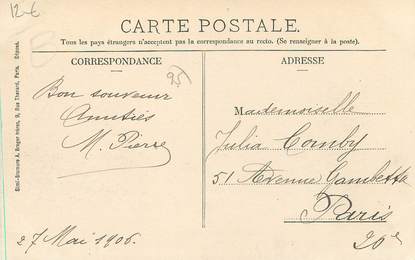 12-€
CARTE POSTALE.
Tous les pays étrangers n'acceptent pas la correspondance au recto. (Se renseigner à la poste).
CORRESPONDANCE
95
Bon souvenir
Amitiés
M. Pierre
27 Mai 1906.
ADRESSE
Mademoiselle
Julia Comby
51 Avenue Gambetta
Paris
20e
A. Breger frères, 9, Rue Thénard, Paris. Déposé.